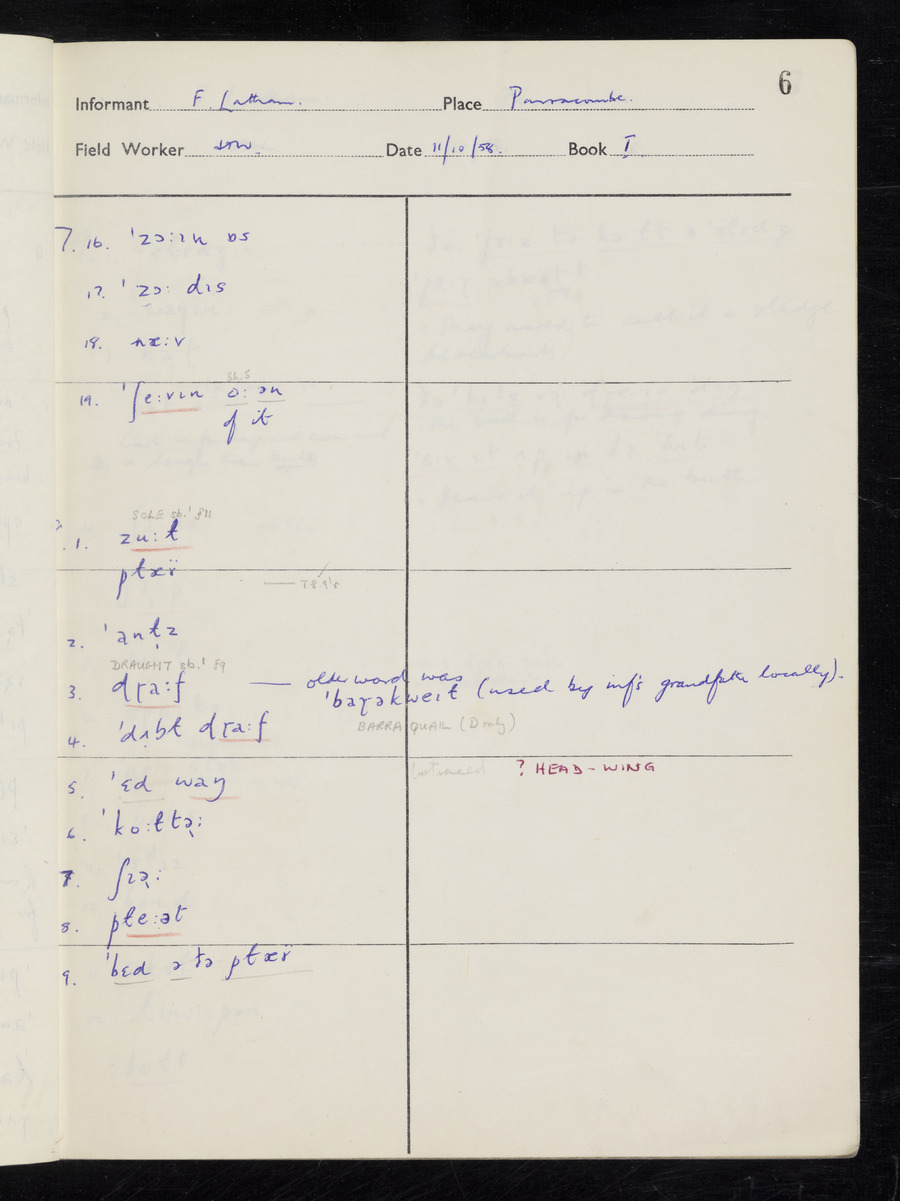 6
Informant F. Latham. Place Parracombe.
Field Worker JTW. Date 11/10/58. Book I
7. 16. ˈzɔ:ɪn ɒs
17. ˈzɔ: dɪs
18. næ:v
sb. 5
19. ˈʃe:vɪn o: ən
of it
SOLE sb.¹ §11
1. zu:ɫ
pɫæʏ̈
T.S.q's
2. ˈanɫ̩z
DRAUGHT sb.¹ §9
3. dɽa:f — older word was
ˈbaɽəkweɪɫ (used by inf's grandfather locally).
4. ˈdʌbɫ dɽa:f
BARRA QUAIL (D only)
5. ˈɛd waŋ
? HEAD-WING
6. ˈko:ɫtə˞:
7. ʃɪə˞:
8. pɫe:ət
9. ˈbɛd ə ðə pɫæʏ̈